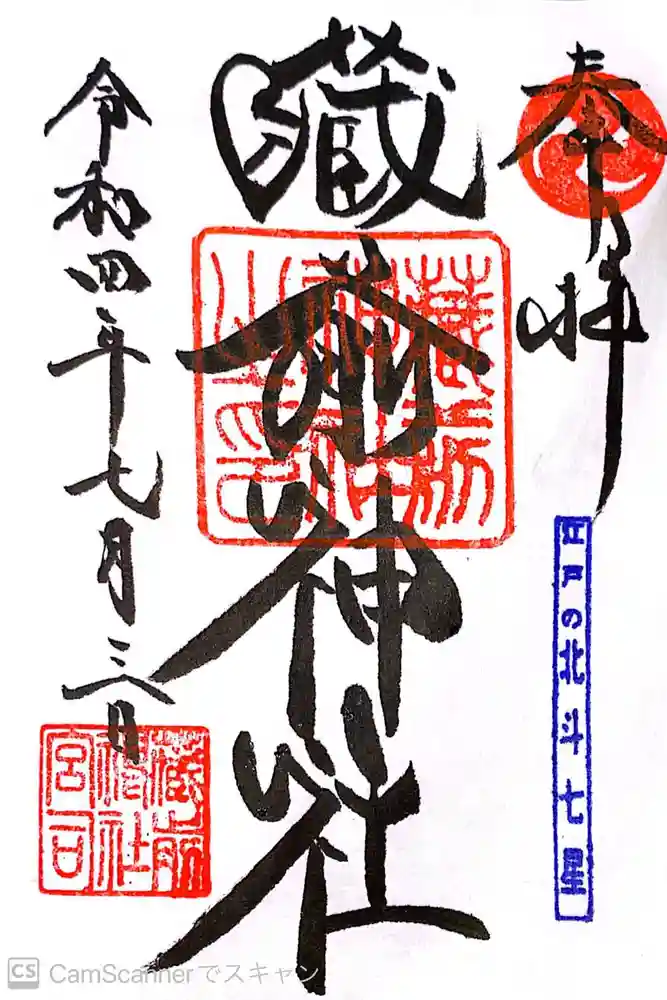 奉拝
江戸の北斗七星
蔵前神社
蔵前
神社
之印
令和四年七月三日
蔵前
神社
宮司
CS CamScannerでスキャン